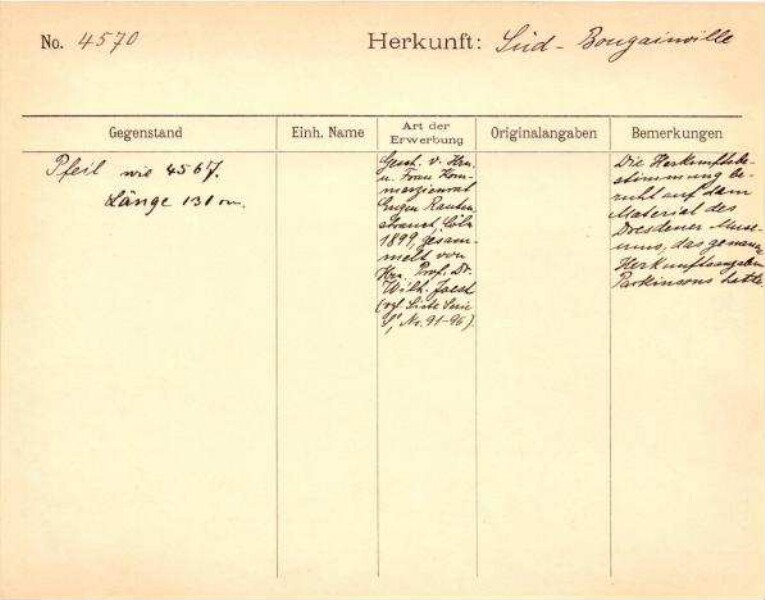 No. 4570
Herkunft: Süd-Bougainville
Gegenstand
Einh. Name
Art der
Erwerbung
Originalangaben
Bemerkungen
Pfeil wie 4567.
Länge 131 cm.
Gesch. v. Hrn.
u. Frau Kom-
merzienrat
Eugen Rauten
strauch, Cöln
1899, gesam-
melt von
Hrn. Prof. Dr.
Wilh. Joest
(vgl. Liste Serie
Nr. 91-96).
Die Herkunftsbe-
stimmung be-
ruht auf dem
Material des
Dresdener Muse-
ums, das genaue
Herkunftsangaben
Parkinsons hatte.